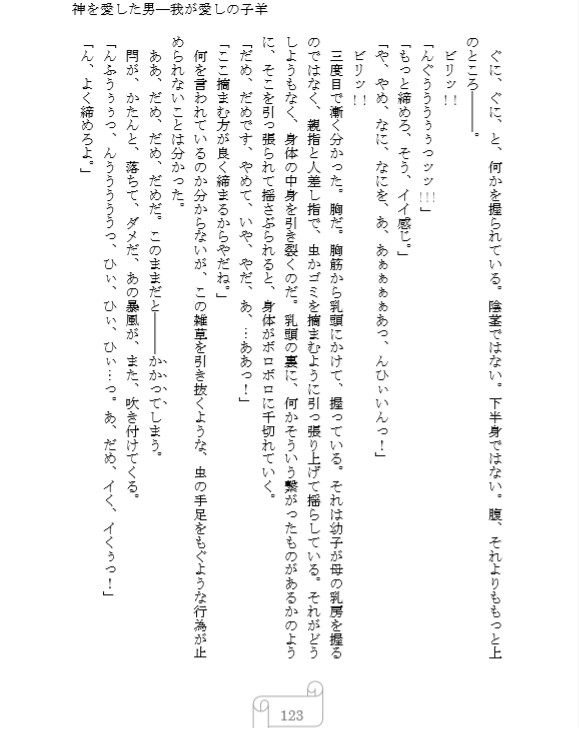 神を愛した男―我が愛しの子羊
ぐに、ぐに、と、何かを握られている。陰茎ではない。下半身ではない。腹、それよりももっと上
のところ――。
ビリッ!!
「んぐぅううぅぅっッッ!!!」
「もっと締めろ、そう、イイ感じ。」
「や、やめ、なに、なにを、あ、あぁぁぁぁあっ、んひぃいんっ！」
ビリッ!!
三度目で漸く分かった。胸だ。胸筋から乳頭にかけて、握っている。それは幼子が母の乳房を握る
のではなく、親指と人差し指で、虫かゴミを摘まむように引っ張り上げて揺らしている。それがどう
しようもなく、身体の中身を引き裂くのだ。乳頭の裏に、何かそういう繋がったものがあるかのよう
に、そこを引っ張られて揺さぶられると、身体がボロボロに千切れていく。
「だめ、だめです、やめて、いや、やだ、あ、…ああっ！」
「ここ摘まむ方が良く締まるからやだね。」
何を言われているのか分からないが、この雑草を引き抜くような、虫の手足をもぐような行為が止
められないことは分かった。
ああ、だめ、だめ、だめだ。このままだと――かかってしまう。
閂が、かたんと、落ちて、ダメだ、あの暴風が、また、吹き付けてくる。
「んふうぅぅっ、んううううっ、ひぃ、ひぃ、ひぃ…っ。あ、だめ、イく、イくぅっ！」
「ん、よく締めろよ。」
123